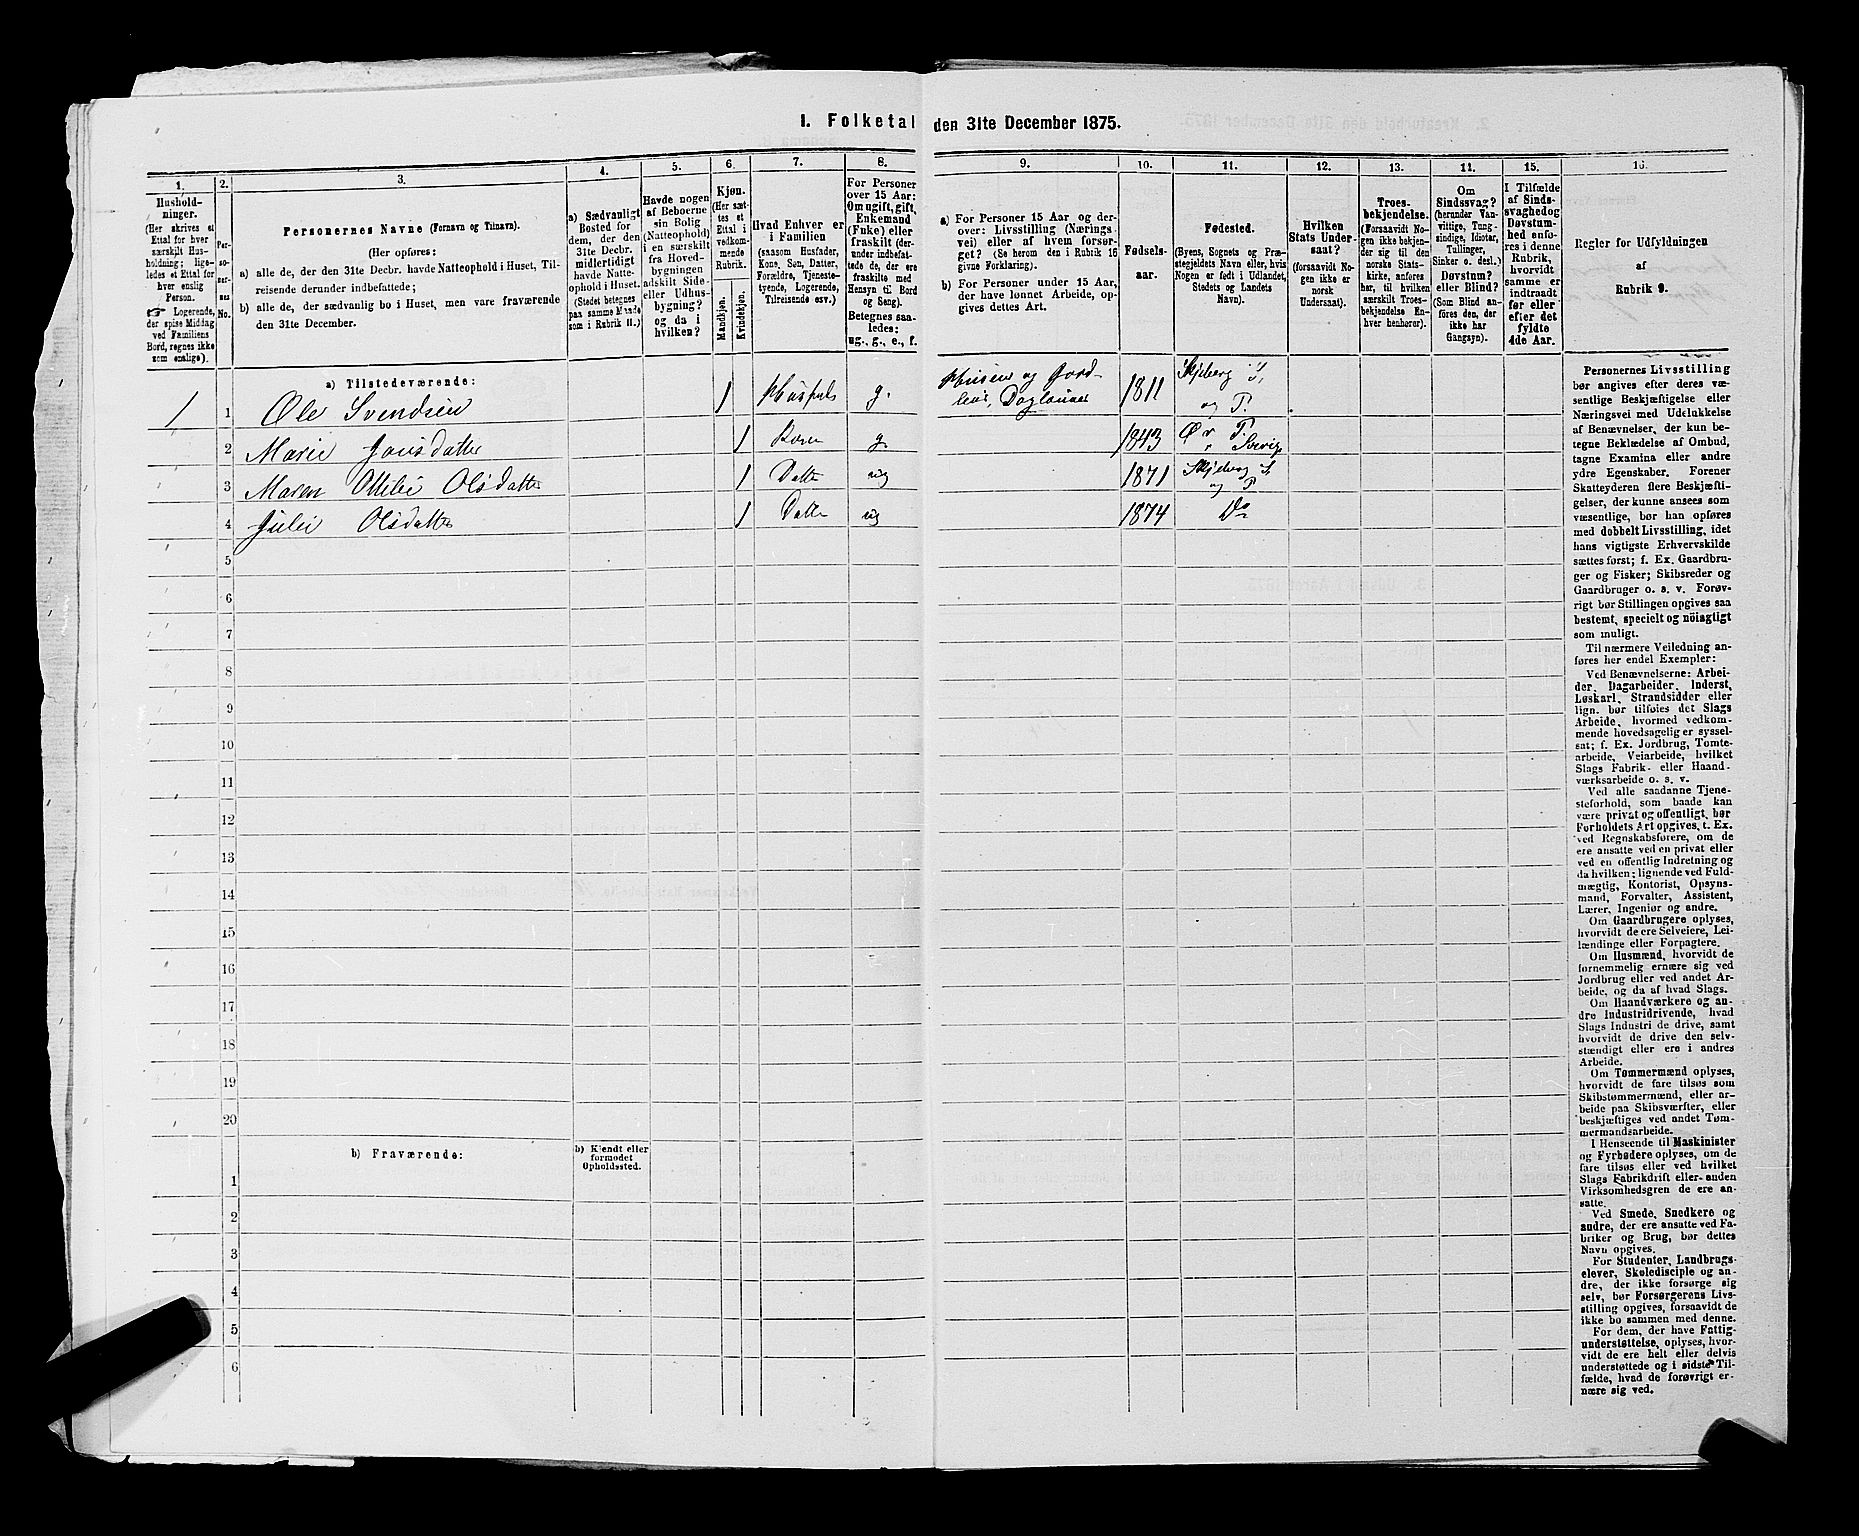 1. Folketal den 31te December 1875.
1.
2.
3.
4.
5.
6.
7.
8.
9.
10.
11.
12.
13.
14.
15.
16.
Hushold-
ninger.
(Her skrives et
Ettal for hver
særskilt Hus-
holdning; lige-
ledes et Ettal for
hver enslig
Person.
☞ Logerende,
der spise Middag
ved Familiens
Bord, regnes ikke
som enslige).
Per-
so-
ner-
nes
No.
Personernes Navne (Fornavn og Tilnavn).
(Her opføres:
a) alle de, der den 31te Decbr. havde Natteophold i Huset, Til-
reisende derunder indbefattede;
b) alle de, der sædvanlig bo i Huset, men vare fraværende
den 31te December.
a) Sædvanligt
Bosted for
dem, der den
31te Decbr.
midlertidigt
havde Natte-
ophold i Huset.
(Stedet betegnes
paa samme Maade
som i Rubrik 11.)
Havde nogen
af Beboerne
sin Bolig
(Natteophold)
i en særskilt
fra Hoved-
bygningen
adskilt Side-
eller Udhus-
bygning?
og da i
hvilken?
Kjøn.
(Her sæt-
tes et
Ettal i
vedkom-
mende
Rubrik.
Mandkjøn.
Kvindekjøn.
Hvad Enhver er
i Familien
(saasom Husfader,
Kone, Søn, Datter,
Forældre, Tjeneste-
tyende, Logerende,
Tilreisende osv.)
For Personer
over 15 Aar:
Om ugift, gift,
Enkemand
(Enke) eller
fraskilt (der-
under indbefat-
tede de, der ere
fraskilte med
Hensyn til Bord
og Seng).
Betegnes saa-
ledes:
ug., g., e., f.
a) For Personer 15 Aar og der-
over: Livsstilling (Nærings-
vei) eller af hvem forsør-
get? (Se herom den i Rubrik 16
givne Forklaring).
b) For Personer under 15 Aar,
der have lønnet Arbeide, op-
gives dettes Art.
Fødsels-
aar.
Fødested.
(Byens, Sognets og Præ-
stegjeldets Navn eller, hvis
Nogen er født i Udlandet,
Stedets og Landets
Navn).
Hvilken
Stats Under-
saat?
(forsaavidt No-
gen ikke er
norsk
Undersaat).
Troes-
bekjendelse.
(Forsaavidt No-
gen ikke bekjen-
der sig til den
norske Stats-
kirke, anføres
her, til hvilken
særskilt Troes-
bekjendelse En-
hver henhører).
Om
Sindssvag?
(herunder Van-
vittige, Tung-
sindige, Idioter,
Tullinger,
Sinker o. desl.)
Døvstum?
eller Blind?
(Som Blind an-
føres den, der
ikke har
Gangsyn).
I Tilfælde
af Sinds-
svaghed og
Døvstum-
hed enfø-
res i denne
Rubrik,
hvorvidt
samme er
indtraadt
før eller
efter det
fyldte
4de Aar.
Regler for Udfyldningen
af
Rubrik 9.
a) Tilstedeværende:
1 1 Ole Svendsen 1 Husfad g. Huusm og Jord-
løs, Dagløner 1811 Skjeberg S.
og P.
2 Marie Jansdatter 1 Kone g. 1843
3 Maren Ottilie Olsdatter 1 Datte ug 1871 Skjeberg S.
og P.
4 Julie Olsdatter 1 Datte ug 1874 Do
5
6
7
8
9
10
11
12
13
14
15
16
17
18
19
20
b) Fraværende:
b) Kjendt eller
formodet
Opholdssted.
1
2
3
4
5
6
Personernes Livsstilling
bør angives efter deres væ-
sentlige Beskjæftigelse eller
Næringsvei med Udelukkelse
af Benævnelser, der kun be-
tegne Beklædelse af Ombud,
tagne Examina eller andre
ydre Egenskaber. Forener
Skatteyderen flere Beskjæfti-
gelser, der kunne ansees som
væsentlige, bør han opføres
med dobbelt Livsstilling, idet
hans vigtigste Erhvervskilde
sættes først; f. Ex. Gaardbru-
ger og Fisker; Skibsreder og
Gaardbruger o. s. v. Forøv-
rigt bør Stillingen opgives saa
bestemt, specielt og nøiagtigt
som muligt.
Til nærmere Veiledning an-
føres her endel Exempler:
Ved Benævnelserne: Arbei-
der, Dagarbeider, Inderst,
Løskarl, Strandsidder eller
lign. bør tilføies det Slags
Arbeide, hvormed vedkom-
mende hovedsagelig er syssel-
sat; f. Ex. Jordbrug, Tomte-
arbeide, Veiarbeide, hvilket
Slags Fabrik- eller Haand-
værksarbeide o. s. v.
Ved alle saadanne Tjene-
steforhold, som baade kan
være privat og offentligt, bør
Forholdets Art opgives, t. Ex.
ved Regnskabsførere, om de
ere ansatte ved en privat eller
ved en offentlig Indretning og
da hvilken; lignende ved Fuld-
mægtig, Kontorist, Opsyns-
mand, Forvalter, Assistent,
Lærer, Ingeniør og andre.
Om Gaardbrugere oplyses,
hvorvidt de ere Selveiere, Lei-
lændinge eller Forpagtere.
Om Husmænd, hvorvidt de
fornemmelig ernære sig ved
Jordbrug eller ved andet Ar-
beide, og da af hvad Slags.
Om Haandværkere og an-
dre Industridrivende, hvad
Slags Industri de drive, samt
hvorvidt de drive den selv-
stændigt eller ere i andres
Arbeide.
Om Tømmermænd oplyses,
hvorvidt de fare tilsøs som
Skibstømmermænd, eller ar-
beide paa Skibsværfter, eller
beskjæftiges ved andet Tøm-
mermandsarbeide.
I Henseende til Maskinister
og Fyrbødere oplyses, om de
fare tilsøs eller ved hvilket
Slags Fabrikdrift eller anden
Virksomhedsgren de ere an-
satte.
Ved Smede, Snedkere og
andre, der ere ansatte ved Fa-
briker og Brug, bør dettes
Navn opgives.
For Studenter, Landbrugs-
elever, Skoledisciple og an-
dre, der ikke forsørge sig
selv, bør Forsørgerens Livs-
stilling opgives, forsaavidt de
ikke bo sammen med denne.
For dem, der have Fattig-
understøttelse, oplyses, hvor-
vidt de ere helt eller delvis
understøttede og i sidste Til-
fælde, hvad de forøvrigt er-
nære sig ved.